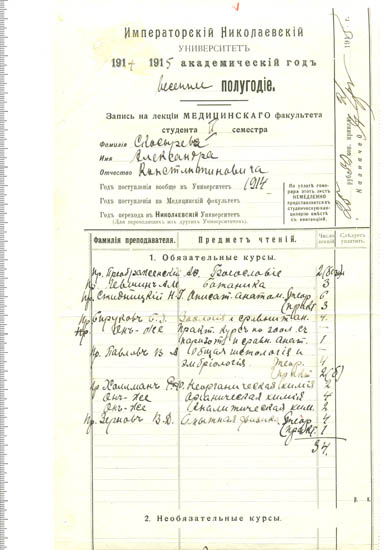 Императорскій Николаевскій
УНИВЕРСИТЕТЪ
1914 1915 академическій годъ
весеннее полугодіе.
Запись на лекціи МЕДИЦИНСКАГО факультета
студента II семестра
Фамилія
Имя Александра
Отчество Константиновича
Годъ поступленія вообще въ Университетъ 1914
Годъ поступленія на Медицинскій факультетъ
Годъ перехода въ Николаевскій Университетъ
(Для переводящихся изъ другихъ Университетовъ).
По уплатѣ гонорара этотъ листъ НЕМЕДЛЕННО представляется въ студенческую канцелярію вмѣстѣ съ квитанціей.
Фамилія преподавателя. Предметъ чтеній. Число лекцій. Слѣдуетъ уплатить.
1. Обязательные курсы.
Пр. Преображенскій Богословіе 2
Пр. Ботаника 3
Пр. Н.Г. Описат. анатом. Теор. 6
Практ. 3
Пр. Зоологія и сравнит. ан. 4
Онъ-же Практ. курсъ по зоол. съ
и сравн. анат. 1
Пр. Павловъ В. А. Общая гистологія и
эмбріологія. Теор. 4
Практ. 2
Пр. Неорганическая химія 2
Онъ-же Органическая химія 4
Онъ-же Аналитическая хим. 2
Пр. Зерновъ В.Д. Опытная физика Теор. 4
Практ. 1
34.
2. Необязательные курсы.